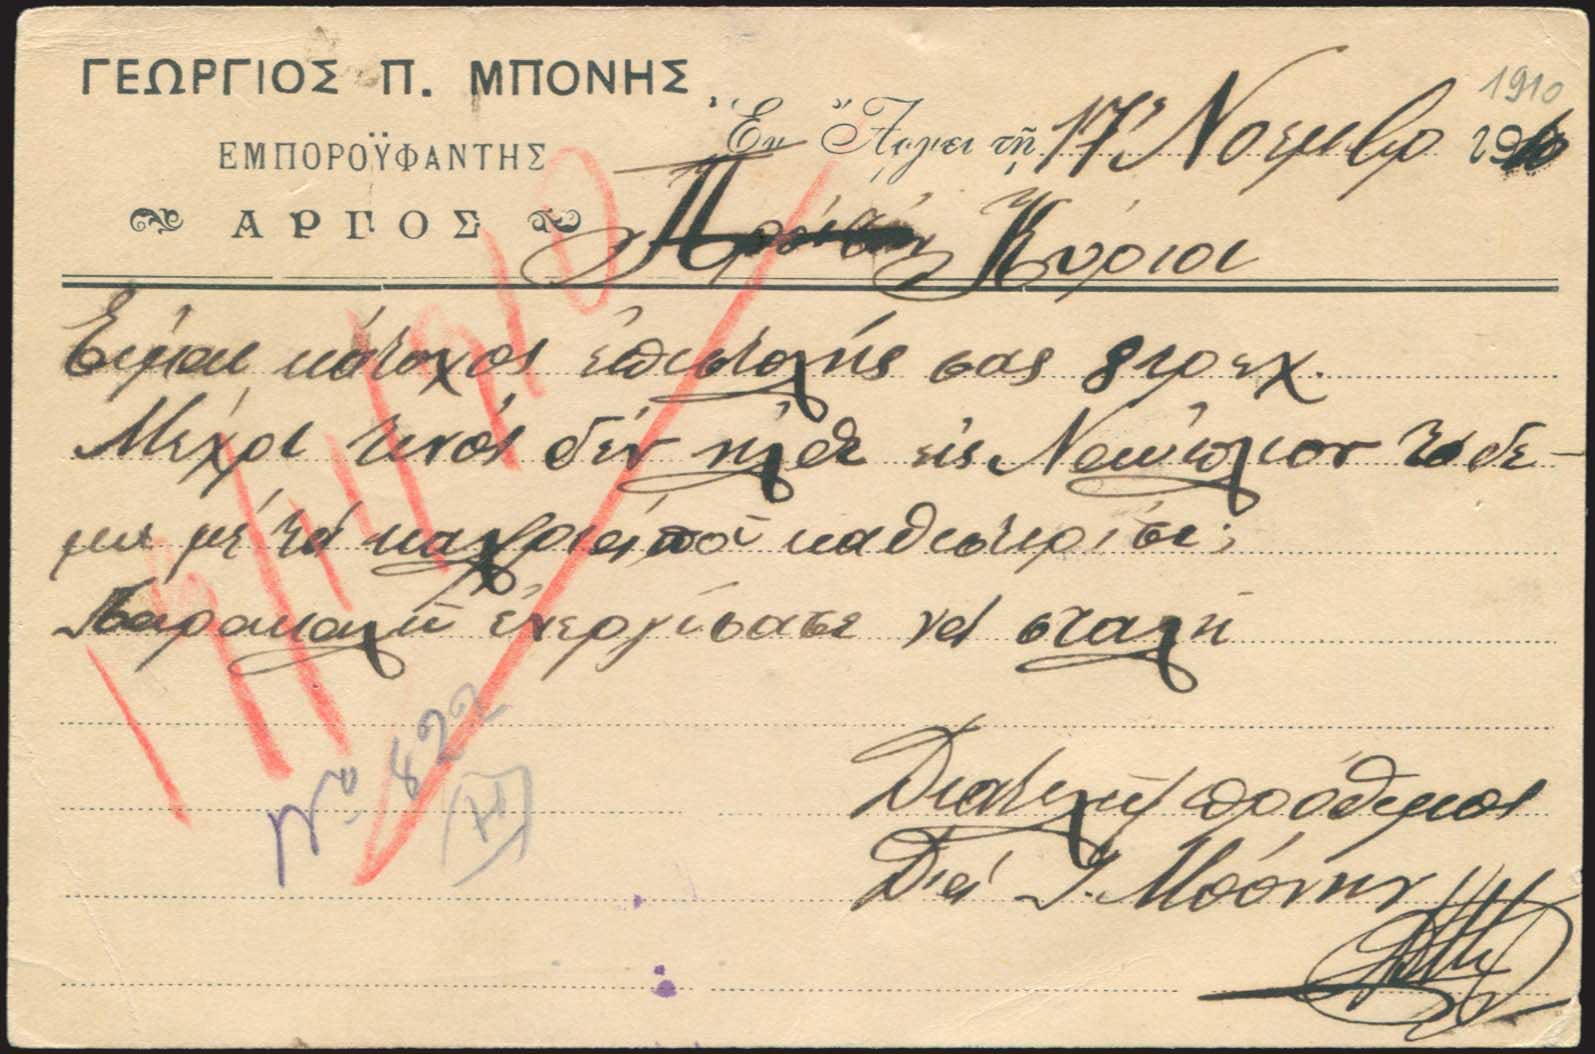 ΓΕΩΡΓΙΟΣ Π. ΜΠΟΝΗΣ
ΕΜΠΟΡΟΫΦΑΝΤΗΣ
ΑΡΓΟΣ
1910
Ἐν Ἄργει τῇ 17 Νοεμβρ 1910
Κύριοι
Εἶμαι κάτοχος ἐπιστολῆς σας 8 τρεχ.
Μέχρι τινός δέν ἦλθε εἰς Ναύπλιον το δε-
μα μέ τά καθυστερίσε;
Παρακαλῶ ἐνεργίσατε νά σταλῆ
Διατελῶ πρόθυμος
Διά Γ. Μπόνην
No 822
17/11/1910